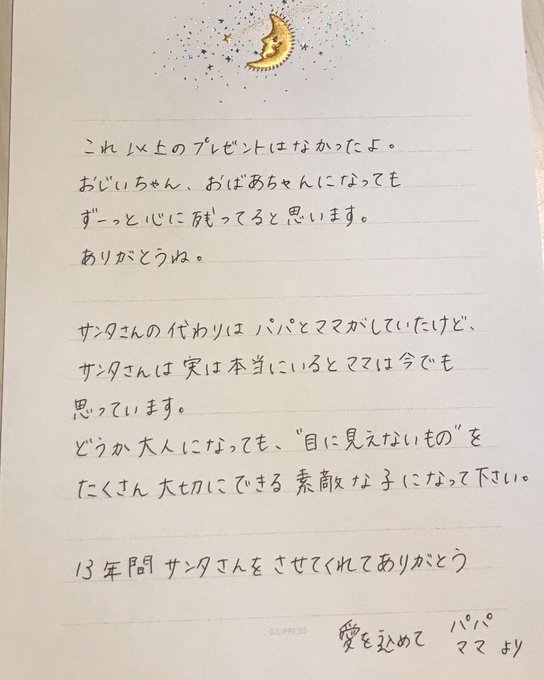 これ以上のプレゼントはなかったよ。
おじいちゃん、おばあちゃんになっても
ずーっと心に残ってると思います。
ありがとうね。
サンタさんの代わりはパパとママがしていたけど、
サンタさんは実は本当にいるとママは今でも
思っています。
どうか大人になっても、"目に見えないもの"を
たくさん大切にできる素敵な子になって下さい。
13年間サンタさんをさせてくれてありがとう
愛を込めて パパ
ママ より
©C.PRESS